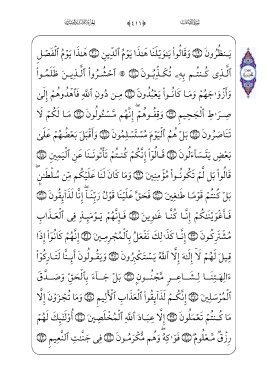 يَنظُرُونَ ۝ وَقَالُوا۟ يَـٰوَيْلَنَا هَـٰذَا يَوْمُ ٱلدِّينِ ۝ هَـٰذَا يَوْمُ ٱلْفَصْلِ
ٱلَّذِى كُنتُم بِهِۦ تُكَذِّبُونَ ۝ ۞ ٱحْشُرُوا۟ ٱلَّذِينَ ظَلَمُوا۟
وَأَزْوَٰجَهُمْ وَمَا كَانُوا۟ يَعْبُدُونَ ۝ مِن دُونِ ٱللَّهِ فَٱهْدُوهُمْ إِلَىٰ
صِرَٰطِ ٱلْجَحِيمِ ۝ وَقِفُوهُمْ ۖ إِنَّهُم مَّسْـُٔولُونَ ۝ مَا لَكُمْ لَا
تَنَاصَرُونَ ۝ بَلْ هُمُ ٱلْيَوْمَ مُسْتَسْلِمُونَ ۝ وَأَقْبَلَ بَعْضُهُمْ عَلَىٰ
بَعْضٍ يَتَسَآءَلُونَ ۝ قَالُوٓا۟ إِنَّكُمْ كُنتُمْ تَأْتُونَنَا عَنِ ٱلْيَمِينِ ۝
قَالُوا۟ بَل لَّمْ تَكُونُوا۟ مُؤْمِنِينَ ۝ وَمَا كَانَ لَنَا عَلَيْكُم مِّن سُلْطَـٰنٍۭ ۖ
بَلْ كُنتُمْ قَوْمًا طَـٰغِينَ ۝ فَحَقَّ عَلَيْنَا قَوْلُ رَبِّنَآ ۖ إِنَّا لَذَآئِقُونَ ۝
فَأَغْوَيْنَـٰكُمْ إِنَّا كُنَّا غَـٰوِينَ ۝ فَإِنَّهُمْ يَوْمَئِذٍ فِى ٱلْعَذَابِ
مُشْتَرِكُونَ ۝ إِنَّا كَذَٰلِكَ نَفْعَلُ بِٱلْمُجْرِمِينَ ۝ إِنَّهُمْ كَانُوٓا۟ إِذَا
قِيلَ لَهُمْ لَآ إِلَـٰهَ إِلَّا ٱللَّهُ يَسْتَكْبِرُونَ ۝ وَيَقُولُونَ أَئِنَّا لَتَارِكُوٓا۟
ءَالِهَتِنَا لِشَاعِرٍ مَّجْنُونٍۭ ۝ بَلْ جَآءَ بِٱلْحَقِّ وَصَدَّقَ
ٱلْمُرْسَلِينَ ۝ إِنَّكُمْ لَذَآئِقُوا۟ ٱلْعَذَابِ ٱلْأَلِيمِ ۝ وَمَا تُجْزَوْنَ إِلَّا
مَا كُنتُمْ تَعْمَلُونَ ۝ إِلَّا عِبَادَ ٱللَّهِ ٱلْمُخْلَصِينَ ۝ أُو۟لَـٰٓئِكَ لَهُمْ
رِزْقٌ مَّعْلُومٌ ۝ فَوَٰكِهُ ۖ وَهُم مُّكْرَمُونَ ۝ فِى جَنَّـٰتِ ٱلنَّعِيمِ ۝